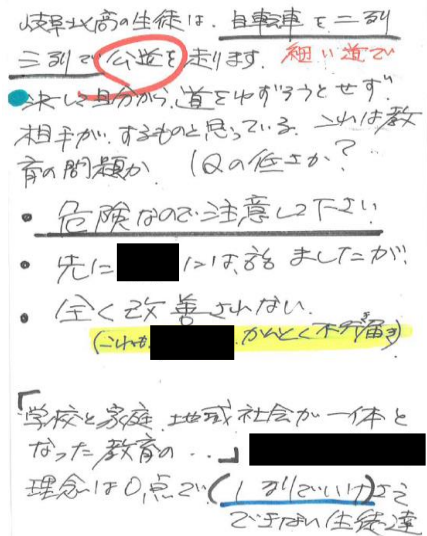 岐阜北高の生徒は、自転車を二列
三列で公道を走ります。細い道で
決して自分から道をゆずろうとせず
相手がするものと思っている。これは教
育の問題か IQの低さか?
・危険なので注意して下さい
・先に には話ましたが
・全く改善されない
(これも かんとく不行届き)
「学校と家庭、地域社会が一体と
なった教育の・・」
理念は0点で(1列でいけ)さえ
できない生徒達